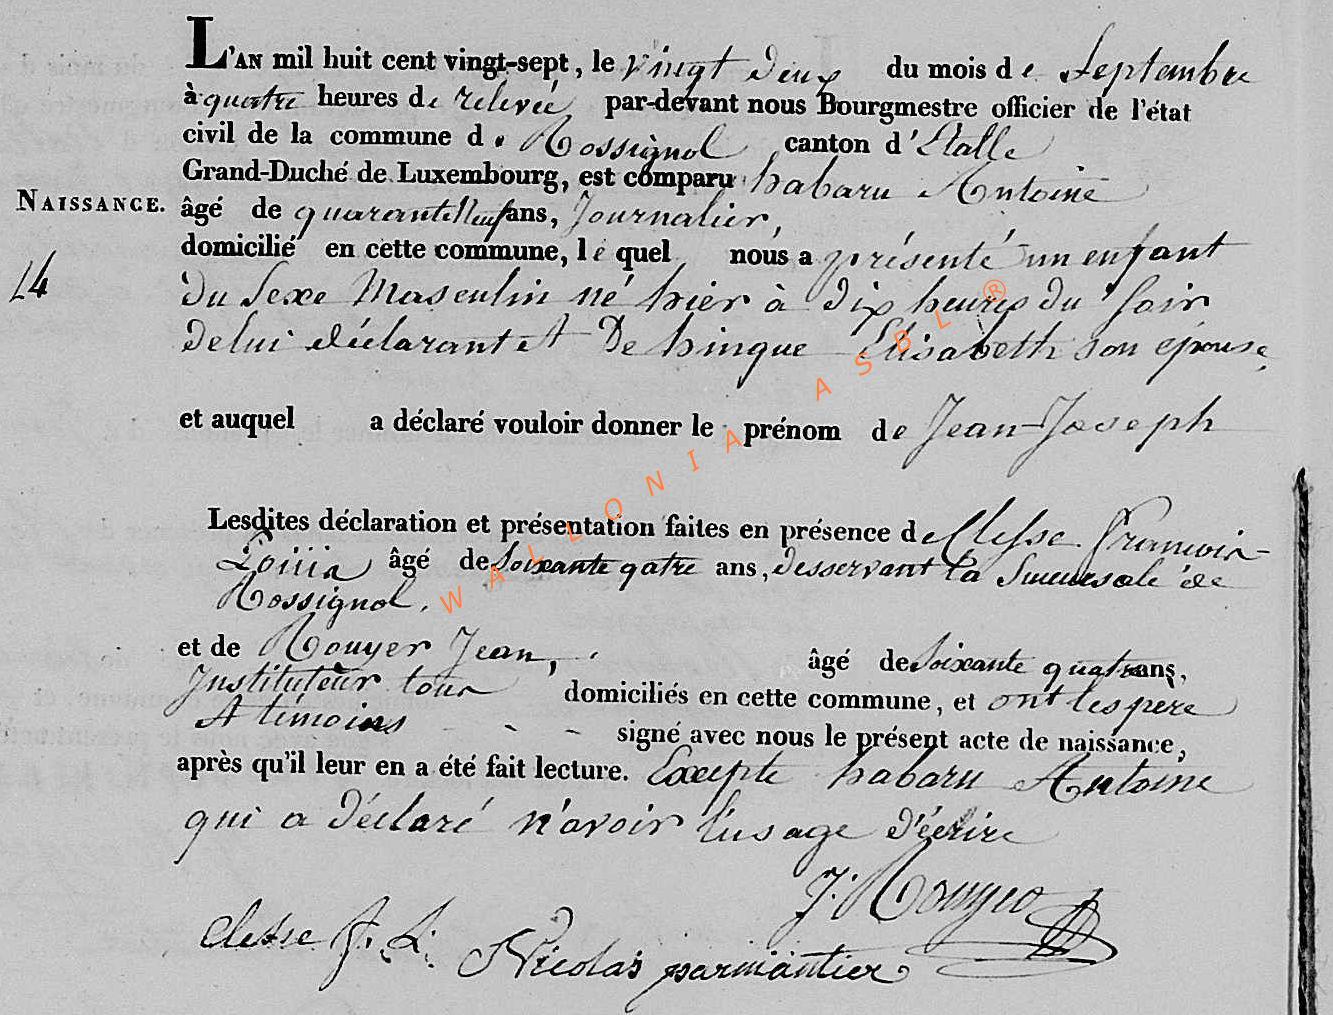 L'AN mil huit cent vingt-sept, le vingt deux du mois de Septembre
à quatre heures de relevée par-devant nous Bourgmestre officier de l'état
civil de la commune de Rossignol canton d'Etalle
Grand-Duché de Luxembourg, est comparu habaru Antoine
NAISSANCE. âgé de quarante Neuf ans, Journalier,
domicilié en cette commune, le quel nous a présenté un enfant
14
du Sexe Masculin né hier à dix heures du Soir
de lui déclarant et De hinque Elisabeth son épouse,
et auquel a déclaré vouloir donner le prénom de Jean-Joseph
Lesdites déclaration et présentation faites en présence de Clesse Francois-
Louis âgé de Soixante qatre ans, desservant la Succursale de
Rossignol.
et de Rouyer Jean, âgé de Soixante quatre ans,
Instituteur tous domiciliés en cette commune, et ont les père
et temoins signé avec nous le présent acte de naissance,
après qu'il leur en a été fait lecture. Excepte habaru Antoine
qui a déclaré n'avoir l'usage d'écrire
J. Rouyer
Clesse f. L.
Nicolas parmantier
WALLONIA ASBL ®